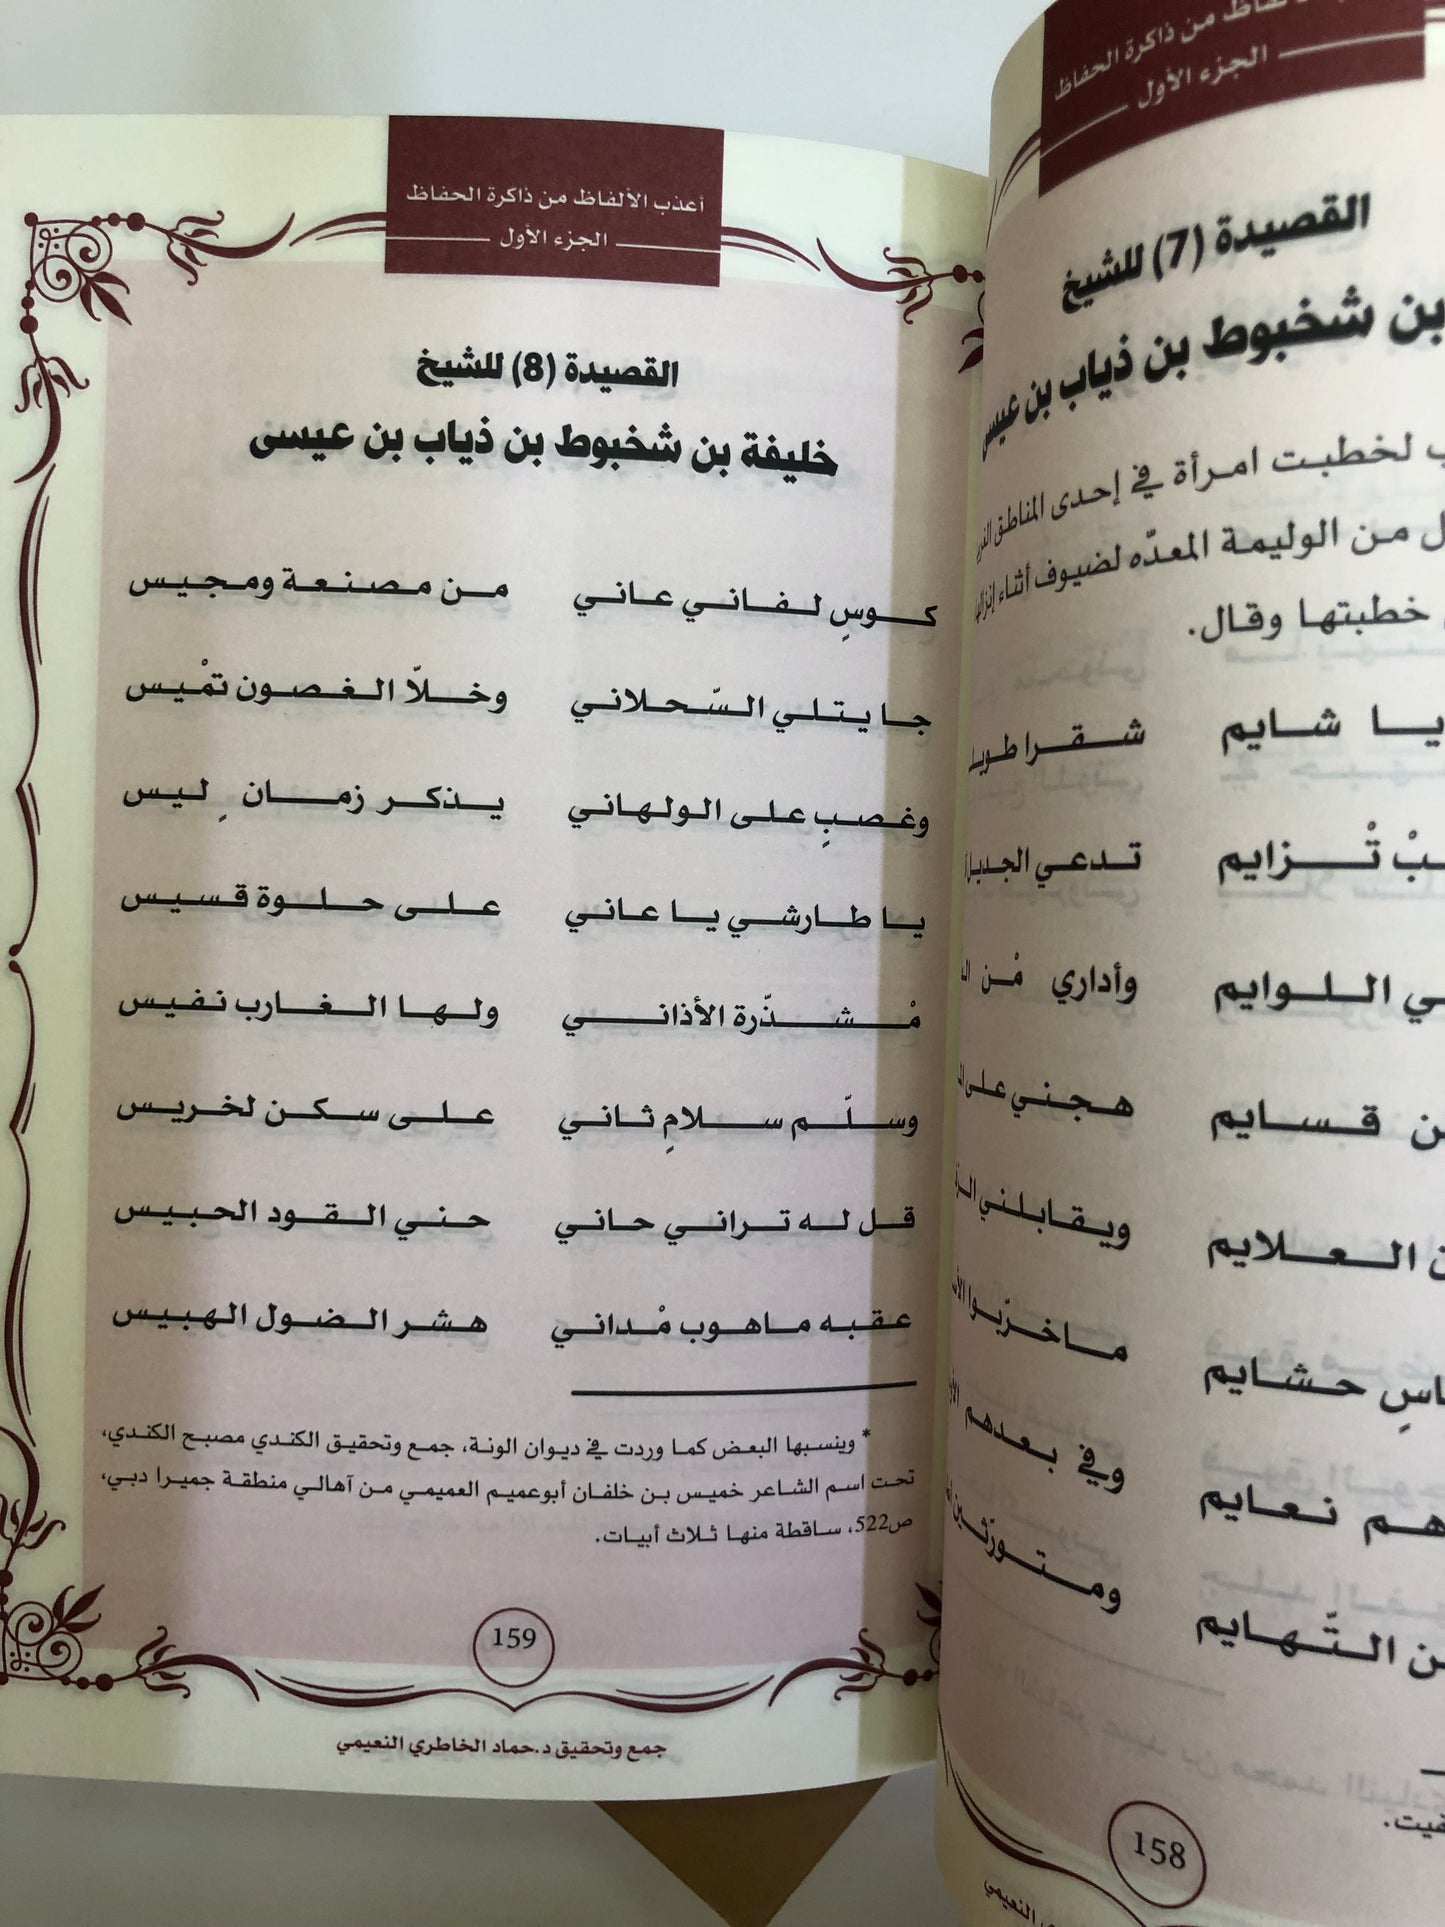 الفاظ من ذاكرة الحفاظ
الجزء الأول
القصيدة (7) للشيخ
بن شخبوط بن ذياب بن عيسى
لخطبت امرأة في إحدى المناطق
من الوليمة المعدّه لضيوف أثناء
خطبتها وقال.
يا شايم شقرا
تْزايم تدعي
اللوايم وأداري مْن
قسايم هجني على
العلايم ويقابلني
حشايم ماخرّبوا
نعايم وفي بعدهم
التّهايم ومتورّثين
158
أعذب الألفاظ من ذاكرة الحفاظ
الجزء الأول
القصيدة (8) للشيخ
خليفة بن شخبوط بن ذياب بن عيسى
كوسٍ لفاني عاني من مصنعة ومجيس
جا يتلي السّحلاني وخلاّ الغصون تمْيس
وغصبٍ على الولهاني يذكر زمانٍ ليس
يا طارشي يا عاني على حلوة قسيس
مْشذّرة الأذاني ولها الغارب نفيس
وسلّم سلامٍ ثاني على سكن لخريس
قل له تراني حاني حني القود الحبيس
عقبه ماهوب مْداني هشر الضول الهبيس
* وينسبها البعض كما وردت في ديوان الونة، جمع وتحقيق الكندي مصبح الكندي،
تحت اسم الشاعر خميس بن خلفان أبوعميم العميمي من آهالي منطقة جميرا دبي،
ص522، ساقطة منها ثلاث أبيات.
159
جمع وتحقيق د.حماد الخاطري النعيمي